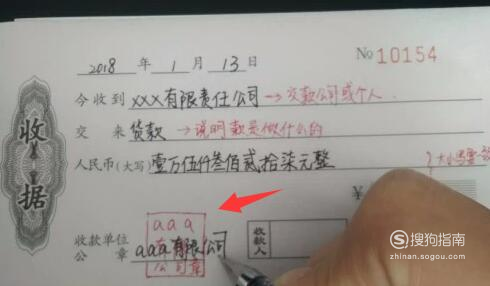 2018 年 1 月 13 日 No 10154
今收到 XXX有限责任公司 → 交款公司或个人
交来 货款 → 说明款是做什么的
人民币(大写) 壹万伍仟叁佰贰拾柒元整
¥
收据
aaa
收款单位 aaa有限公司
公章
公司章
收款人
搜狗指南
zhinan.sogou.com